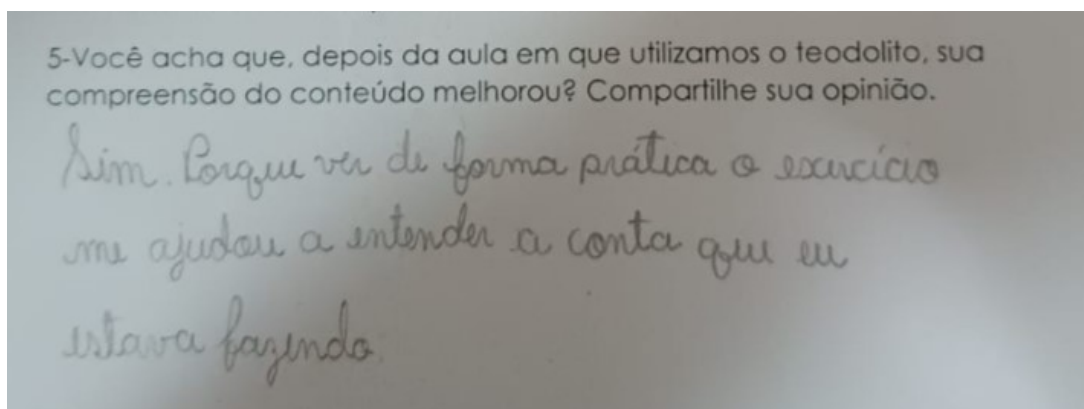 5-Você acha que, depois da aula em que utilizamos o teodolito, sua
compreensão do conteúdo melhorou? Compartilhe sua opinião.
Sim. Porque ver de forma prática o exercício
me ajudou a entender a conta que eu
estava fazendo.